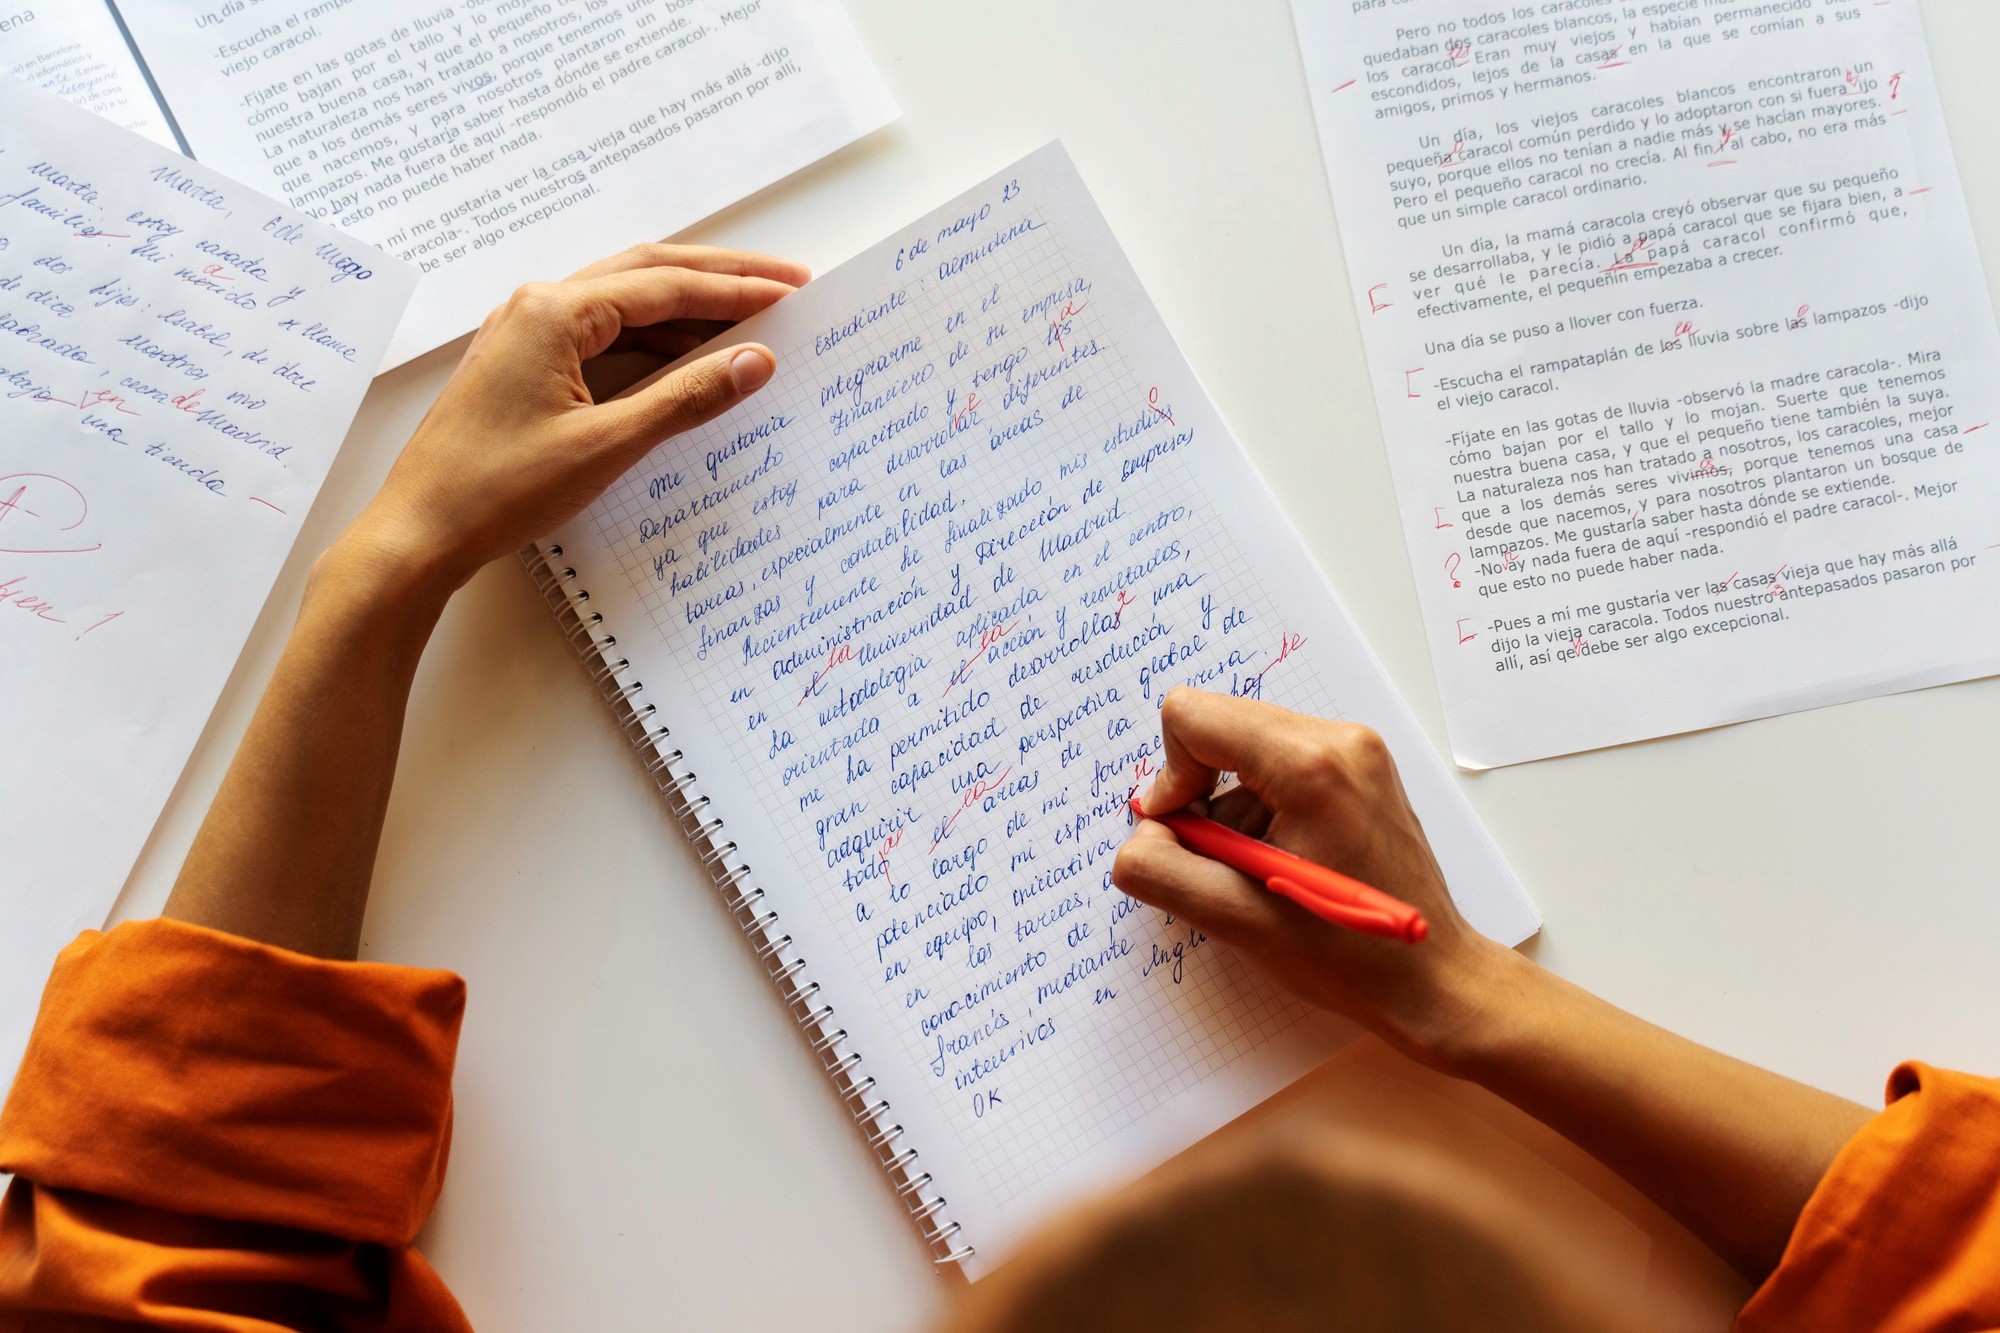 Marta, 6 de mayo
Marta. estoy casada y
familias. Mi merido se llama
a
dos hijos: Isabel, de doce
de diez
Mosotros, vivo
cerca de Madrid.
en
una tienda
A-
bien!
Un día
-Escucha el rampa
viejo caracol.
-Fíjate en las gotas de lluvia -ob
cómo bajan por el tallo y lo moja
nuestra buena casa, y que el pequeño tie
La naturaleza nos han tratado a nosotros, los
que a los demás seres vivos, porque tenemos una
que nacemos, y para nosotros plantaron un bos
lampazos. Me gustaría saber hasta dónde se extiende.
No hay nada fuera de aquí -respondió el padre caracol-. Mejor
esto no puede haber nada.
a mí me gustaría ver la casa vieja que hay más allá -dijo
caracola-. Todos nuestros antepasados pasaron por allí,
be ser algo excepcional.
6 de mayo 23
Estudiante : almudena
Me gustaria integrarme en el
Departamento Financiero de su empresa,
ya que estoy capacitado y tengo los
a
habilidades para desarrobar diferentes
tareas, especialmente en las áreas de
finanzas y contabilidad.
Recientemente he finalizado mis estudius
o
en administración y Dirección de empresas
en el Universidad de Madrid.
la
La metodologia aplicada en el centro,
orientada a el acción y resultados,
la
me ha permitido desarrollas una
r
gran capacidad de resolución y
adquirir una perspectiva global de
todo el areas de la empresa.
as
la
a lo largo de mi formac
hoy
he
potenciado mi espiritu
u
en equipo, iniciativa y
en las tareas, a
conocimiento de idi
francés, mediante e
intensivos en Ingl
OK
para con
Pero no todos los caracoles
quedaban dos caracoles blancos, la especie más
los caracol. Eran muy viejos y habían permanecido
escondidos, lejos de la casas en la que se comían a sus
amigos, primos y hermanos.
Un día, los viejos caracoles blancos encontraron un
pequeña caracol común perdido y lo adoptaron con si fuera ijo
suyo, porque ellos no tenían a nadie más y se hacían mayores.
Pero el pequeño caracol no crecía. Al fin y al cabo, no era más
que un simple caracol ordinario.
Un día, la mamá caracola creyó observar que su pequeño
se desarrollaba, y le pidió a papá caracol que se fijara bien, a
ver qué le parecía. La papá caracol confirmó que,
efectivamente, el pequeñín empezaba a crecer.
Una día se puso a llover con fuerza.
-Escucha el rampataplán de los lluvia sobre las lampazos -dijo
la
el viejo caracol.
-Fíjate en las gotas de lluvia -observó la madre caracola-. Mira
cómo bajan por el tallo y lo mojan. Suerte que tenemos
nuestra buena casa, y que el pequeño tiene también la suya.
La naturaleza nos han tratado a nosotros, los caracoles, mejor
que a los demás seres vivimos, porque tenemos una casa
desde que nacemos, y para nosotros plantaron un bosque de
lampazos. Me gustaría saber hasta dónde se extiende.
-No ay nada fuera de aquí -respondió el padre caracol-. Mejor
que esto no puede haber nada.
-Pues a mí me gustaría ver las casas vieja que hay más allá
dijo la vieja caracola. Todos nuestro antepasados pasaron por
allí, así qe debe ser algo excepcional.